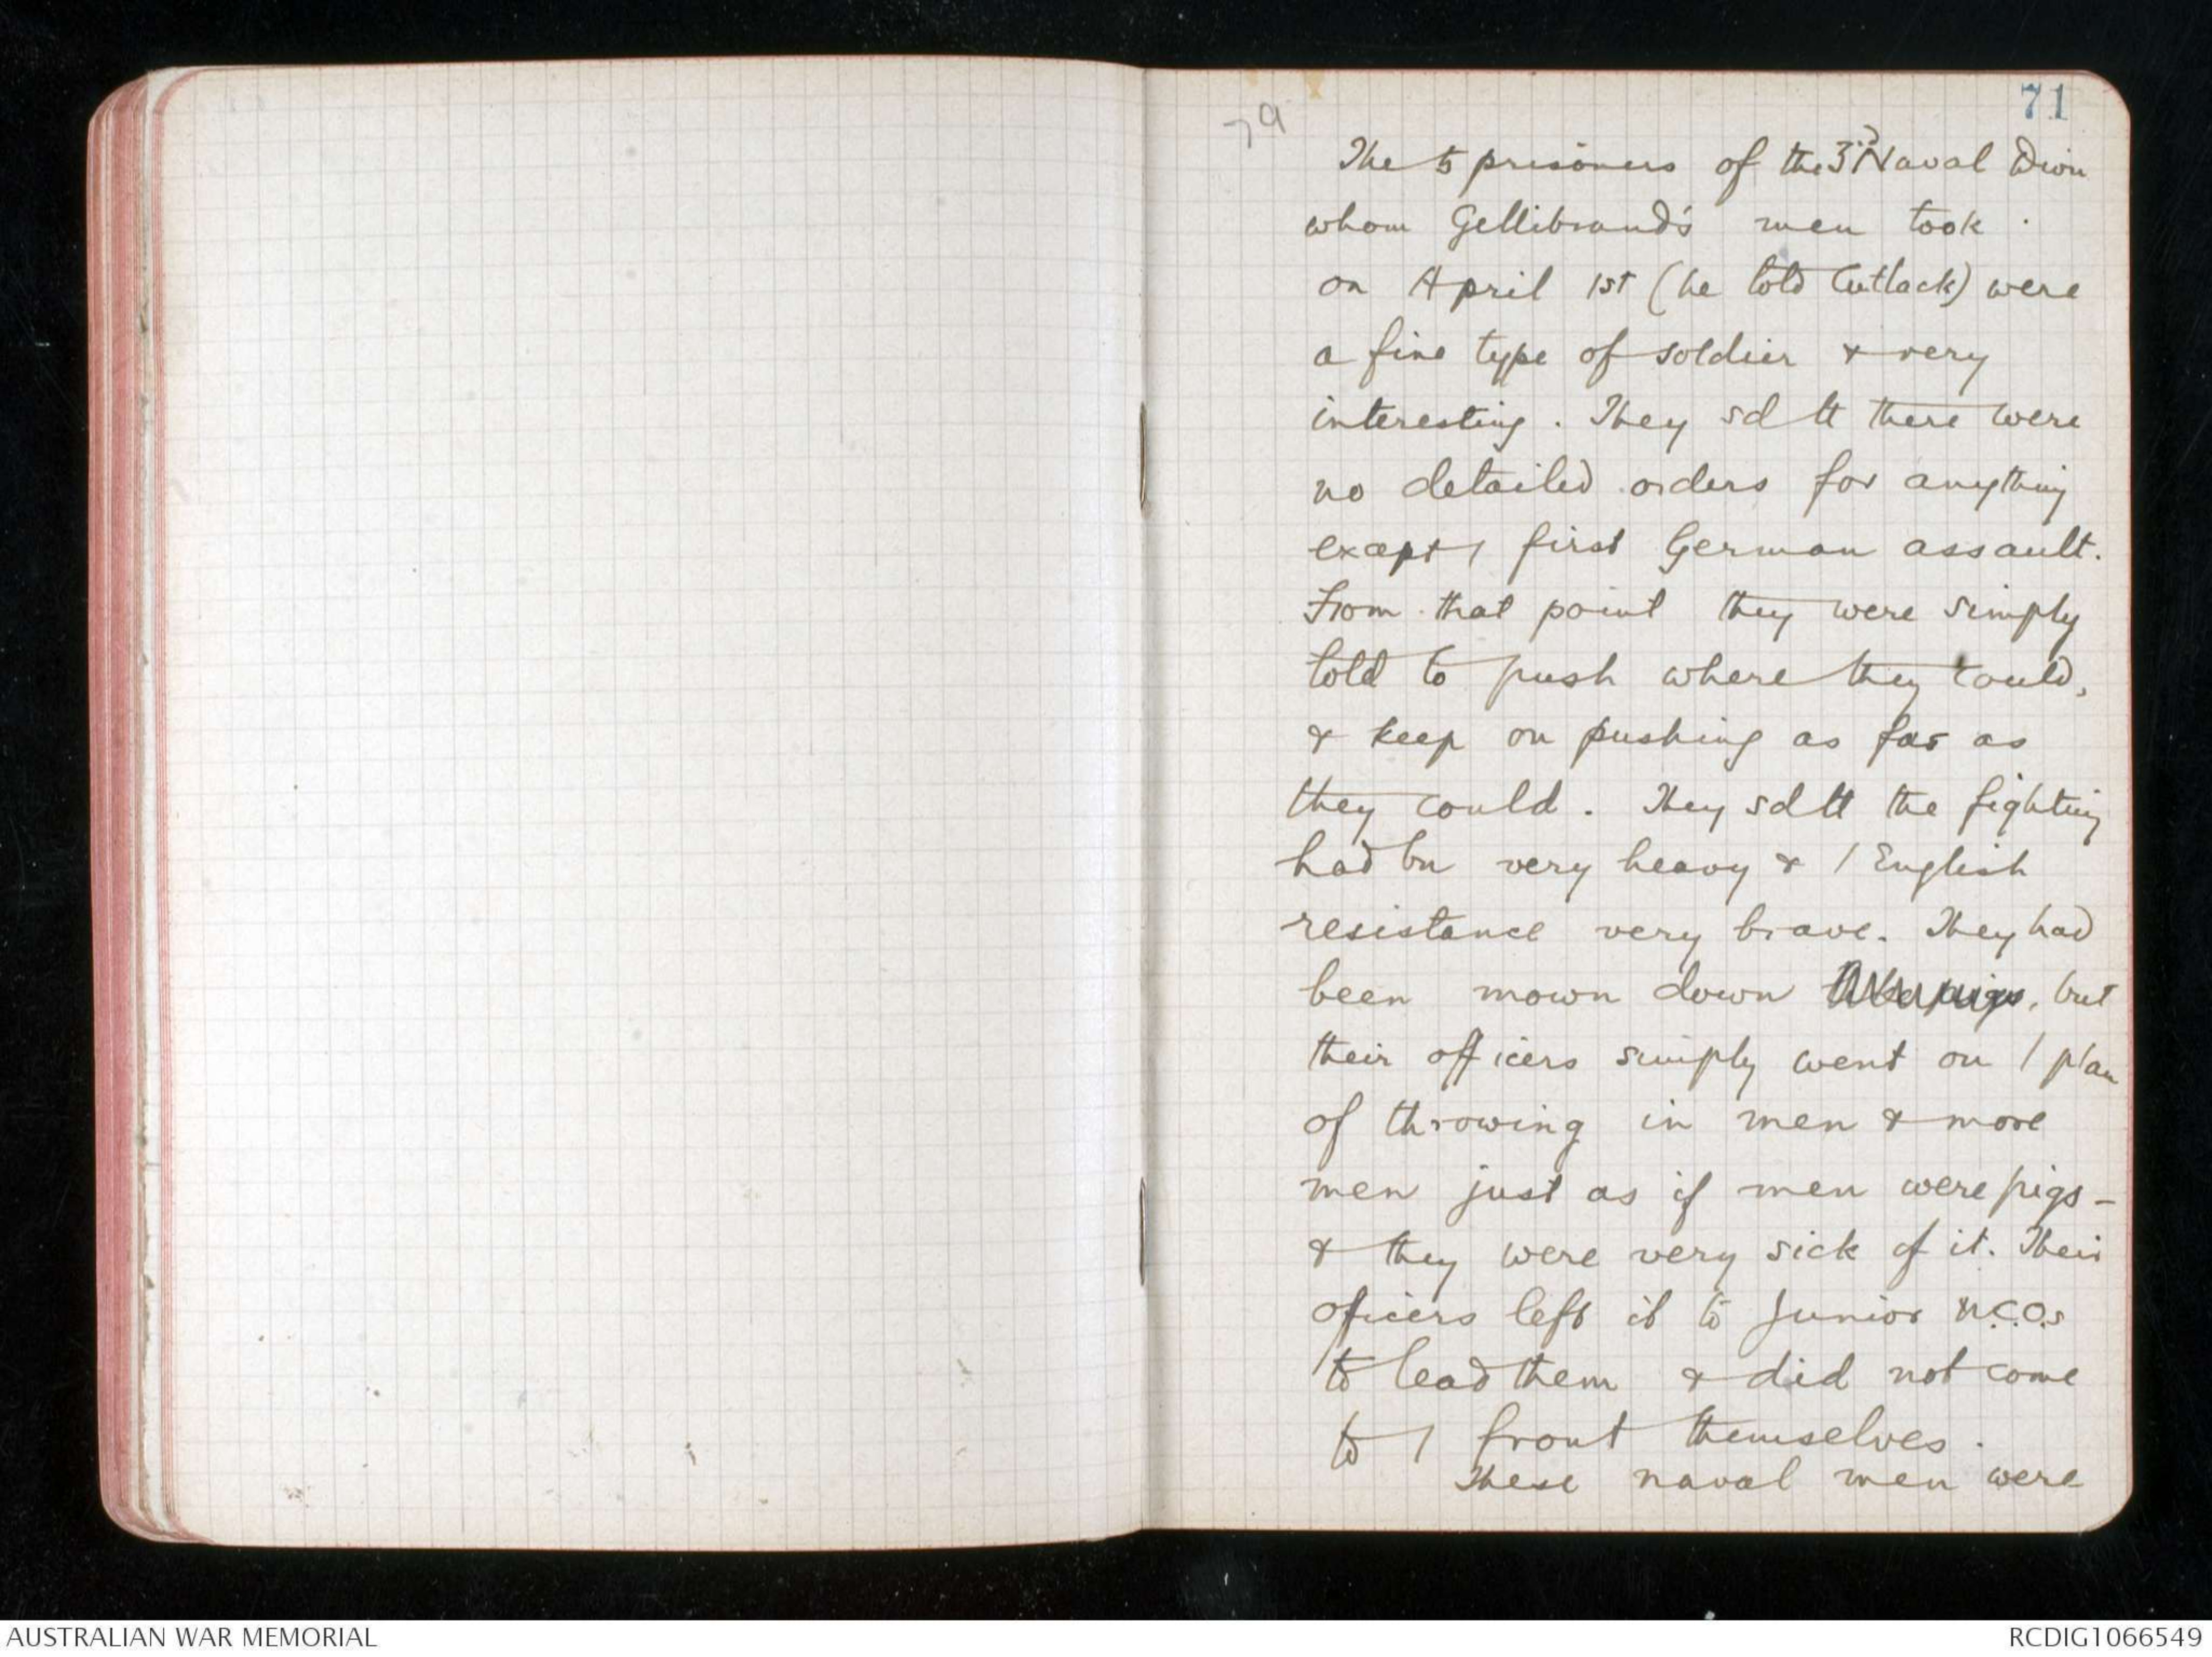 79
71
The 5 prisoners of the 3rd Naval Divn
whom Gellibrand's men took
on April 1st (he told Cutlack) were
a fine type of soldier & very
interesting. They sd tt there were
no detailed orders for anything
except / first German assault.
From that point they were simply
told to push where they could,
& keep on pushing as far as
they could. They sd tt the fighting
had bn very heavy & / English
resistance very brave. They had
been mown down like pigs, but
their officers simply went on / plan
of throwing in men & more
men just as if men were pigs –
& they were very sick of it. Their
officers left it to junior N.C.Os
to lead them & did not come
to / front themselves.
These naval men were
AUSTRALIAN WAR MEMORIAL
RCDIG1066549